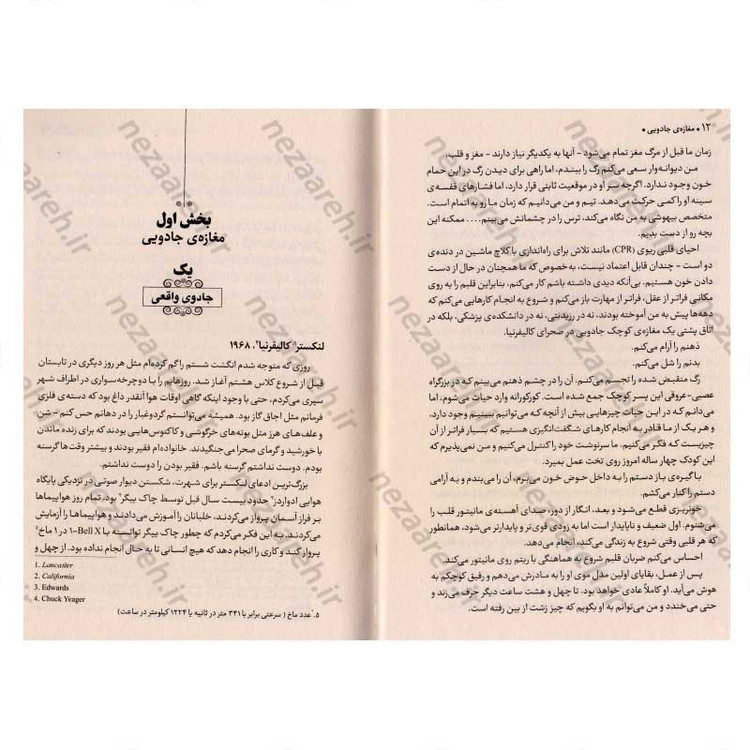 ۱۲ • مغازه‌ی جادویی •
زمان ما قبل از مرگ مغز تمام می‌شود - آنها به یکدیگر نیاز دارند - مغز و قلب.
من دیوانه‌وار سعی می‌کنم رگ را ببندم، اما راهی برای دیدن رگ در این حمام
خون وجود ندارد. اگرچه سر او در موقعیت ثابتی قرار دارد، اما فشارهای قفسه‌ی
سینه او را کمی حرکت می‌دهد. تیم و من می‌دانیم که زمان ما رو به اتمام است.
متخصص بیهوشی به من نگاه می‌کند، ترس را در چشمانش می‌بینم.... ممکنه این
بچه رو از دست بدیم.
احیای قلبی ریوی (CPR) مانند تلاش برای راه‌اندازی با کلاچ ماشین در دنده‌ی
دو است - چندان قابل اعتماد نیست، به‌خصوص که ما همچنان در حال از دست
دادن خون هستیم. بی‌آنکه دیدی داشته باشم کار می‌کنم، بنابراین قلبم را به روی
مکانی فراتر از عقل، فراتر از مهارت باز می‌کنم و شروع به انجام کارهایی می‌کنم که
دهه‌ها پیش به من آموخته بودند، نه در رزیدنتی، نه در دانشکده‌ی پزشکی، بلکه در
اتاق پشتی یک مغازه‌ی کوچک جادویی در صحرای کالیفرنیا.
ذهنم را آرام می‌کنم.
بدنم را شل می‌کنم.
رگ منقبض شده را تجسم می‌کنم. آن را در چشم ذهنم می‌بینم که در بزرگراه
عصبی-عروقی این پسر کوچک جمع شده است. کورکورانه وارد حیات می‌شوم، اما
می‌دانم که در این حیات چیزهایی بیش از آنچه که می‌توانیم ببینیم وجود دارد،
و هر یک از ما قادر به انجام کارهای شگفت‌انگیزی هستیم که بسیار فراتر از آن
چیزیست که فکر می‌کنیم. ما سرنوشت خود را کنترل می‌کنیم و من نمی‌پذیرم که
این کودک چهار ساله امروز روی تخت عمل بمیرد.
با گیره‌ی باز دستم را به داخل حوض خون می‌برم، آن را می‌بندم و به آرامی
دستم را کنار می‌کشم.
خونریزی قطع می‌شود و بعد، انگار از دور، صدای آهسته‌ی مانیتور قلب را
می‌شنوم. اول ضعیف و ناپایدار است اما به زودی قوی‌تر و پایدارتر می‌شود، همانطور
که هر قلبی وقتی شروع به زندگی می‌کند، انجام می‌دهد.
احساس می‌کنم ضربان قلبم شروع به هماهنگی با ریتم روی مانیتور می‌کند.
پس از عمل، بقایای اولین مدل موی او را به مادرش می‌دهم و رفیق کوچکم به
هوش می‌آید. او کاملاً عادی خواهد بود. تا چهل و هشت ساعت دیگر حرف می‌زند و
حتی می‌خندد و من می‌توانم به او بگویم که چیز زشت از بین رفته است.
بخش اول
مغازه‌ی جادویی
یک
جادوی واقعی
لنکستر¹ کالیفرنیا²، ۱۹۶۸
روزی که متوجه شدم انگشت شستم را گم کرده‌ام مثل هر روز دیگری در تابستان
قبل از شروع کلاس هشتم آغاز شد. روزهایم را با دوچرخه‌سواری در اطراف شهر
سپری می‌کردم، حتی با وجود اینکه گاهی اوقات هوا آنقدر داغ بود که دسته‌ی فلزی
فرمانم مثل اجاق گاز بود. همیشه می‌توانستم گردوغبار را در دهانم حس کنم - شن
و علف‌های هرز مثل بوته‌های خرگوشی و کاکتوس‌هایی بودند که برای زنده ماندن
با خورشید و گرمای صحرا می‌جنگیدند. خانواده‌ام فقیر بودند و بیشتر وقت‌ها گرسنه
بودم. دوست نداشتم گرسنه باشم. فقیر بودن را دوست نداشتم.
بزرگ‌ترین ادعای لنکستر برای شهرت، شکستن دیوار صوتی در نزدیکی پایگاه
هوایی ادواردز³ حدود بیست سال قبل توسط چاک ییگر⁴ بود. تمام روز هواپیماها
بر فراز آسمان پرواز می‌کردند، خلبانان را آموزش می‌دادند و هواپیماها را آزمایش
می‌کردند. به این فکر می‌کردم که چطور چاک ییگر توانسته با Bell X-۱ در ۱ ماخ⁵
پرواز کند و کاری را انجام دهد که هیچ انسانی تا به حال انجام نداده بود. از چهل و
1. Lancaster
2. California
3. Edwards
4. Chuck Yeager
۵. عدد ماخ (سرعتی برابر با ۳۴۱ متر در ثانیه یا ۱۲۲۴ کیلومتر در ساعت)
nezaareh.ir